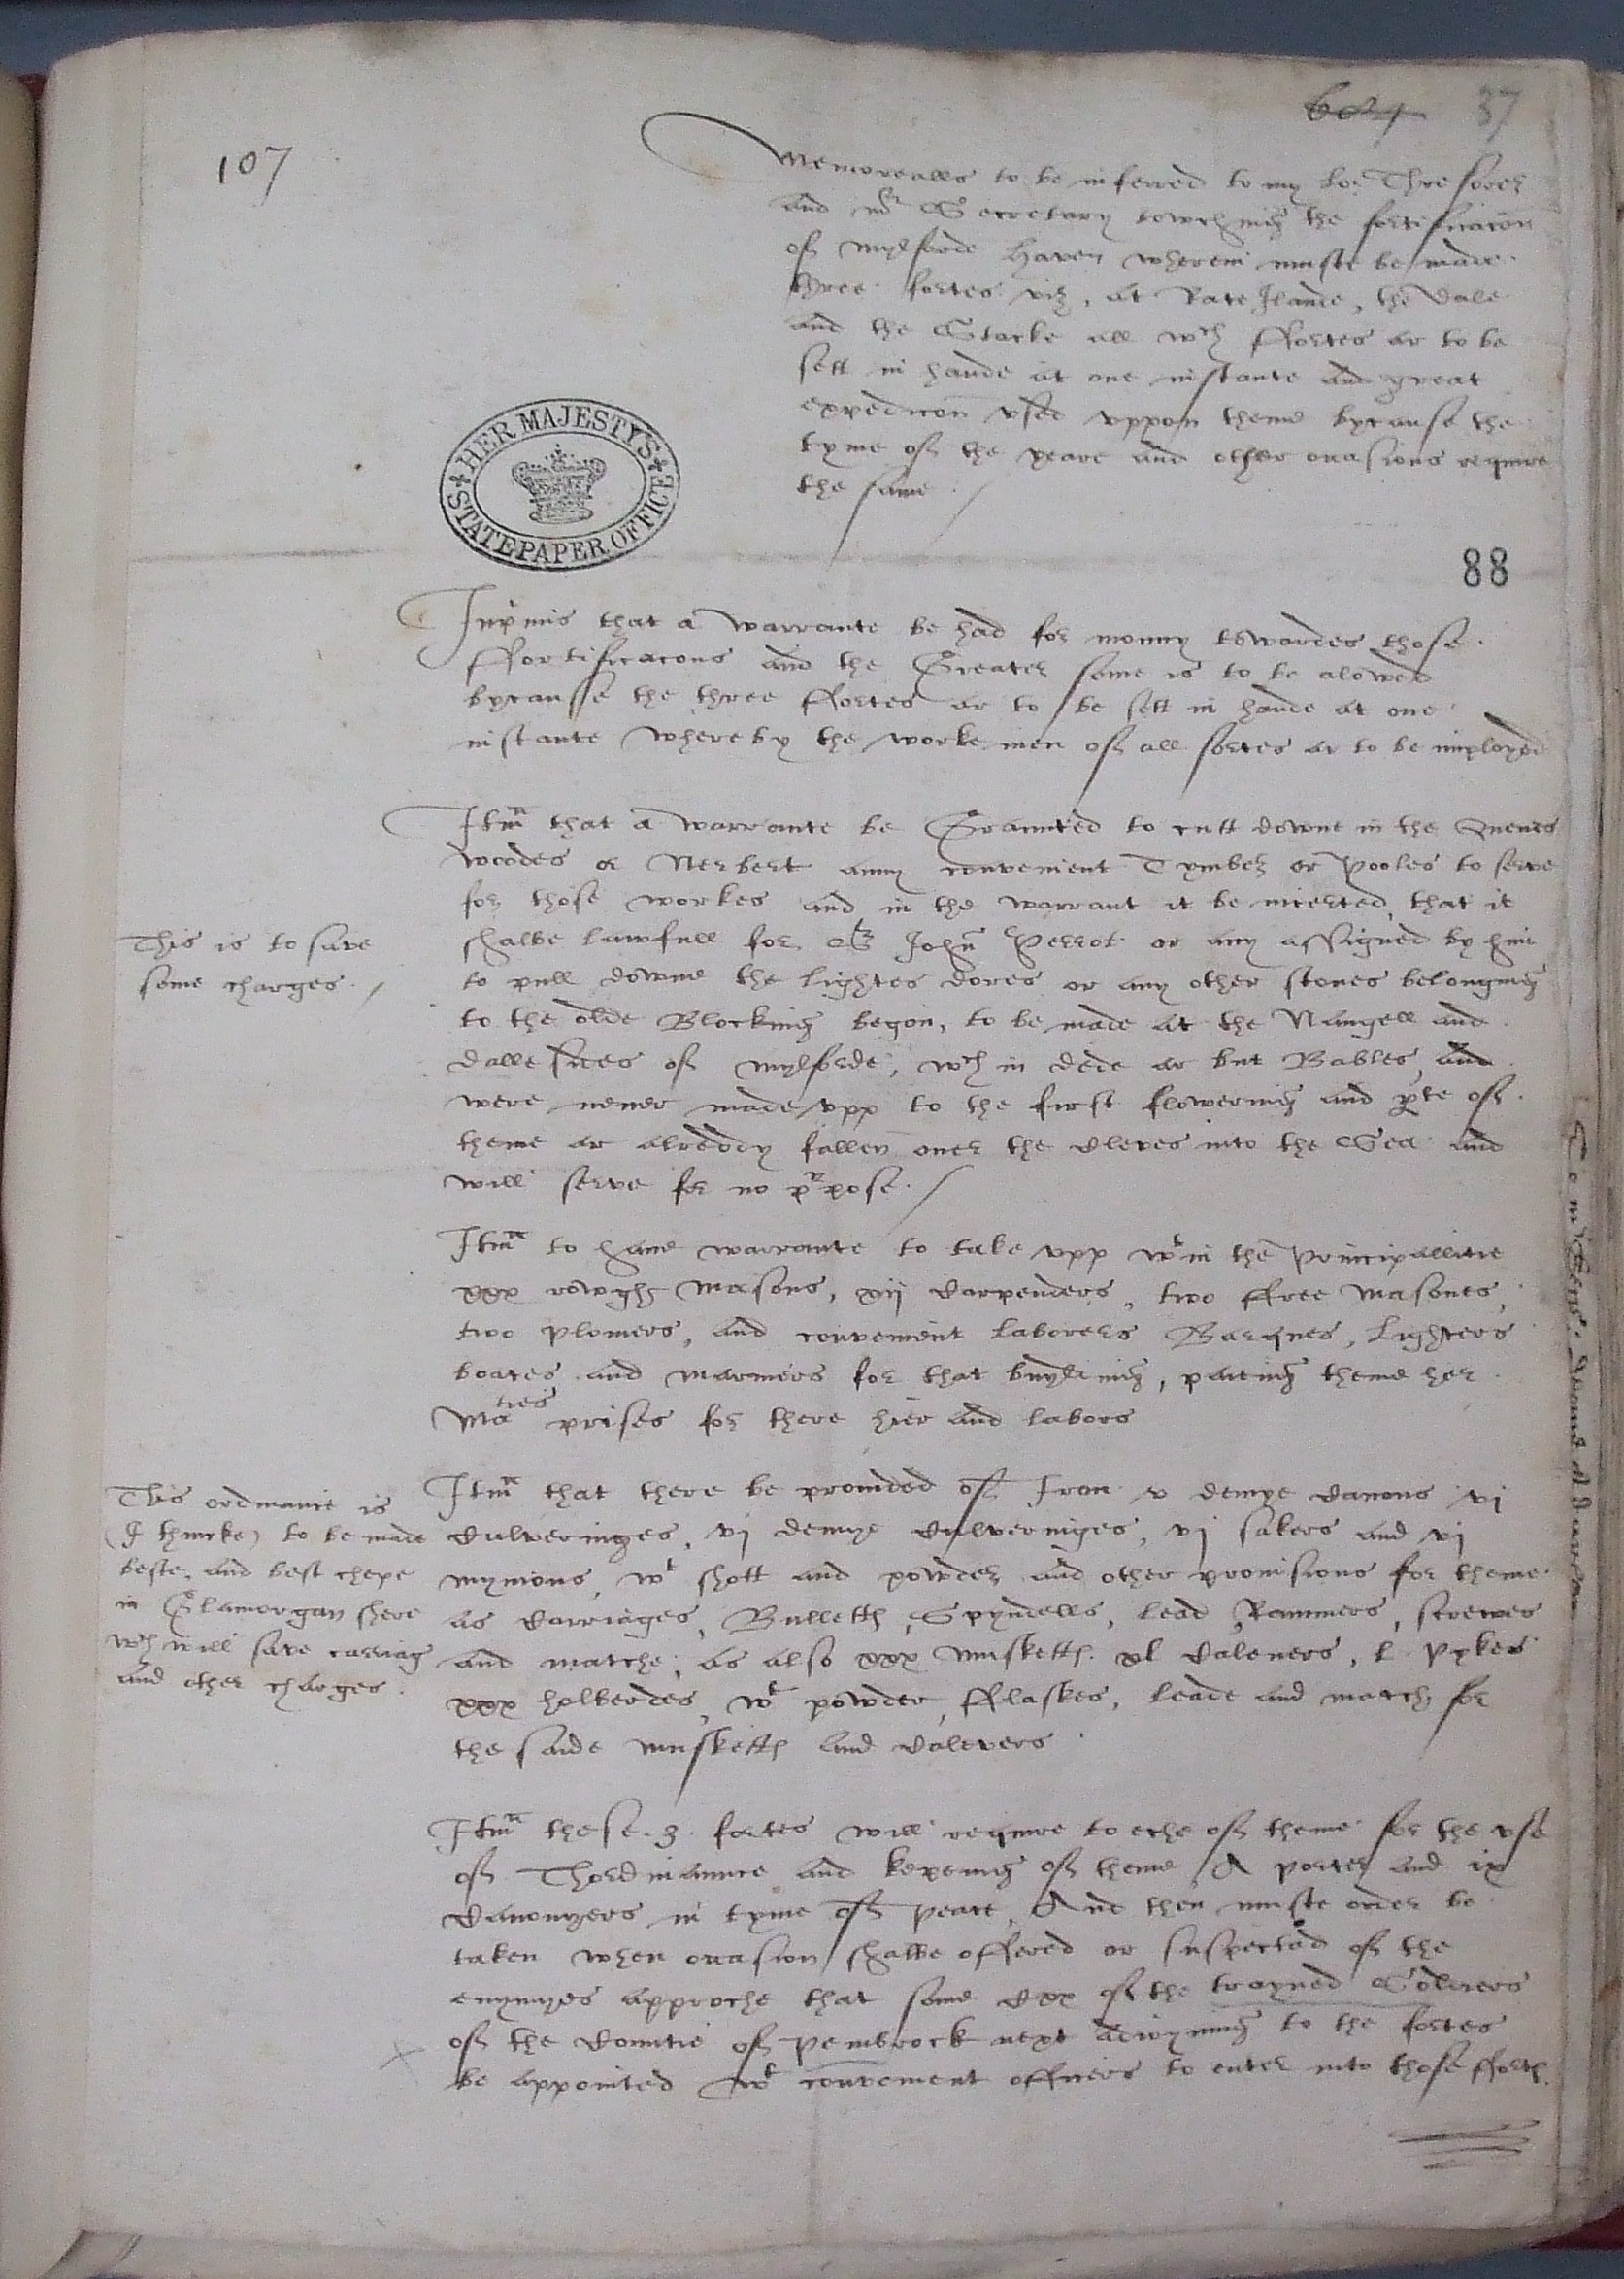 607 37
107
Memorealls to be inferred to my lor Thresorer
and mr Secretary towching the fortificacon
of Mylforde Haven wherein muste be made
three fortes viz, at Rate Ilande, the Dale
and the Stacke all wch ffortes ar to be
sett in hande at one instante and great
expedicon vsed vppon theme bycause the
tyme of the yeare and other occasions require
the same
HER MAJESTYS STATE PAPER OFFICE
88
Inprimis that a warrante be had for monny towardes those
ffortificacons and the Greater some is to be alowed
bycausse the three ffortes ar to be sett in hande at one
instante whereby the workemen of all sortes ar to be imployed
Itm that a warrante be Graunted to cutt downe in the Quenes
woodes or Nerbert anny convenient Tymber or Pooles to serve
for those workes and in the warrant it be incerted, that it
shalbe lawfull for Sr John Perrot or any assigned by him
to pull downe the lightes dores or any other stones belonging
to the olde Blocking begon, to be made at the Nangell and
Dalle sides of Mylforde, wch in dede ar but Bables, and
were never made vpp to the first flowering and pte of
theme ar alreddy fallen over the Cleves into the Sea and
will serve for no prpose.
This is to save
some charges.
Itm to have warrante to take vpp wt in the Principallitie
xxx rowgh Masons, xij Carpenders, two ffree Masones,
two plomers, and convenient laborers Barques, Lighters
boates and mariners for that buylding, paieing theme her
Maties prises for there hier and labors
Itm that there be provided of Iron v demye Canons vi
Culveringes, vj demye Culveringes, vj sakers and vi
mynions, wt shott and powder and other provisions for theme
as Carriages, Bulletts, Spyndells, lead, Rammers, screwes
and matche, as also xxx musketts xl Calevers, l Pykes
xxx holberdes, wt powder, fflaskes, leade and match for
the saide musketts and Calevers
This ordinance is
(I thincke) to be made
beste, and best chepe
in Glamorgan shere
wch will save carriag
and other charges.
Itm these .3. fortes will require to eche of theme for the vse
of Thordinannce and kepeing of theme, A porter and ix
Canonyers in tyme of peace, And then muste order be
taken when occasion shalbe offered or suspected of the
enymyes approche that some Cxx of the trayned Soldiers
of the Countie of Pembrock next adioyning to the fortes
be appointed wt convenient officers to enter into those fforts.